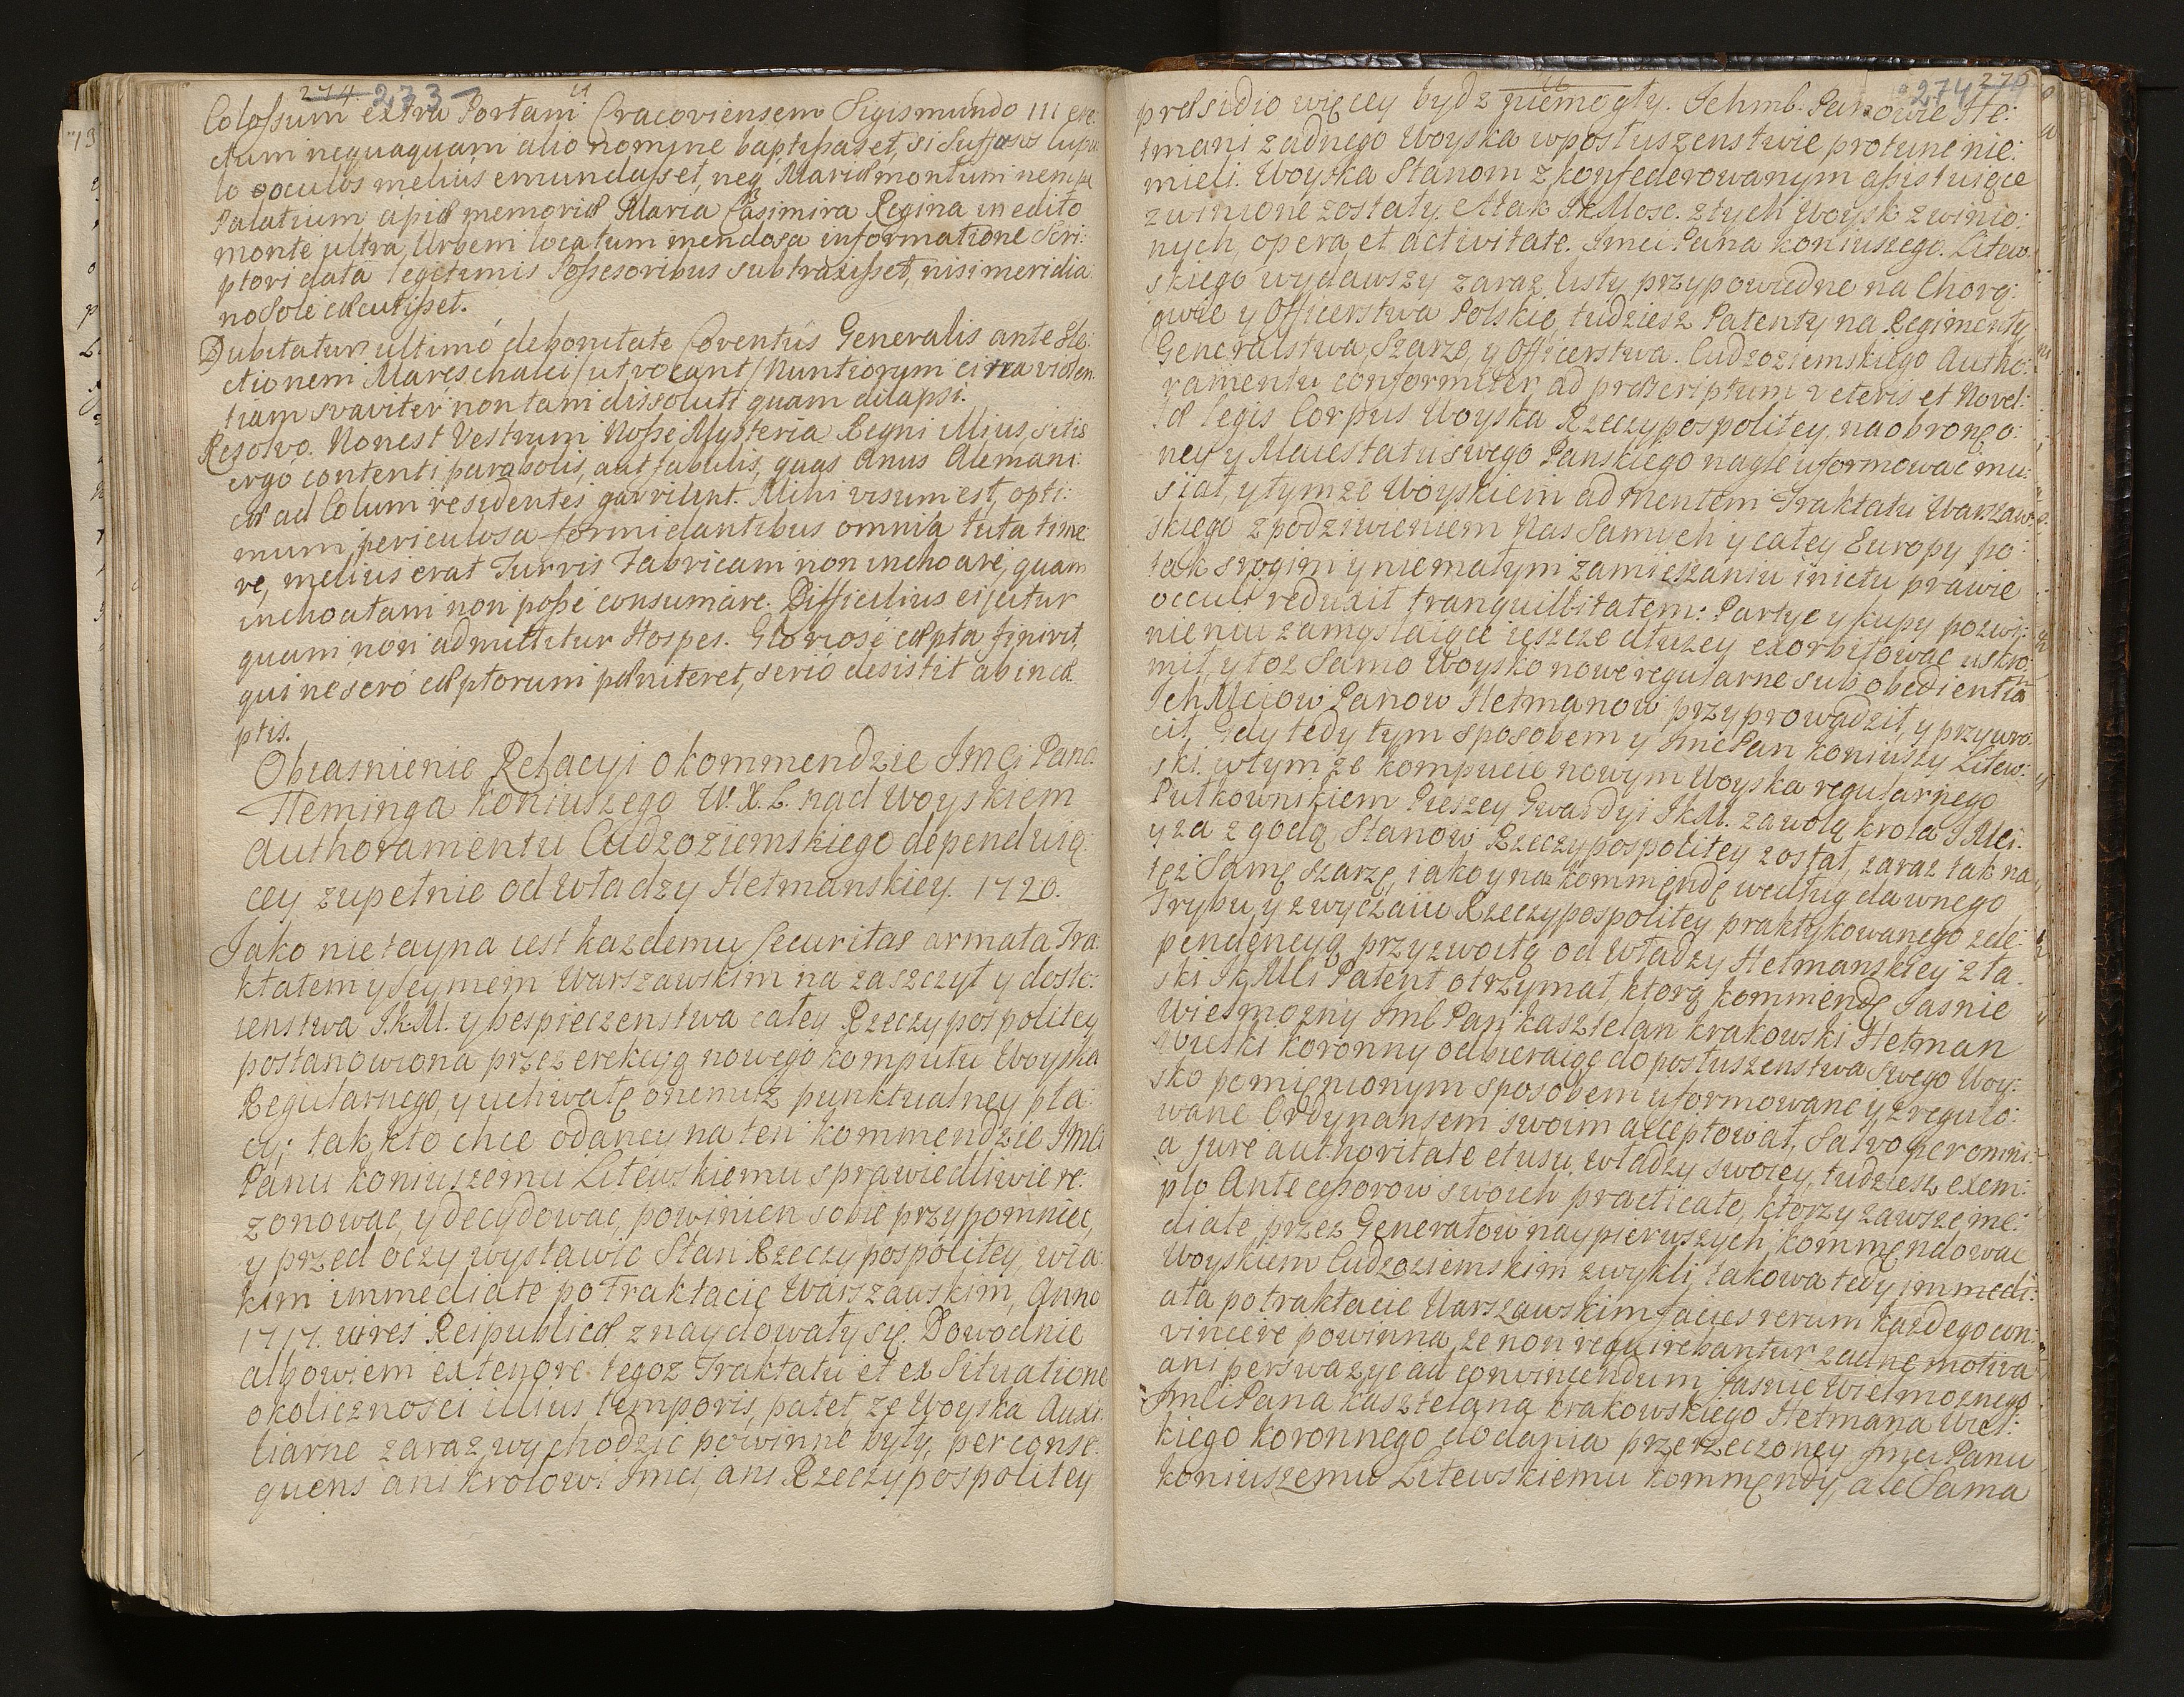 274. 273
Colossum extra Portam Cracoviensem Sigismundo III ere:
ctum nequaquam alio nomine baptisaset, si Suffows lupu
lo oculos melius emundasset, neq Mariæ montum nempe
Palatium apiæ memoriæ Maria Casimira Regina in edito
monte ultra Urbem locatum mendosa informatione Scri:
ptori data legitimis Possesoribus subtraxisset, nisi meridia
no Sole cæcutisset.
Dubitatur ultimó de bonitate Coventûs Generalis ante Ele:
ctionem Mareschalci /ut vocant/ Nuntiorum citra violen
tiam svaviter non tam dissoluti quam dilapsi.
Resolvo. Non est Vestrum Nosse Mysteria Regni Illius, sitis
ergo contenti parabolis, aut fabulis, quas Anus Alemani:
cæ ad Colum residentes garriunt. Mihi visum est, opti:
mum periculosa formidantibus omnia tuta time
re, melius erat Turris Fabricam non inchoare, quam
inchoatam non posse consumare. Difficilius eijcitur
quam non admittitur Hospes. Gloriosé cæpta finivit,
qui ne seró cæptorum pæniteret, serio desistit ab incæ
ptis.
Obiasnienie Relacyi o kommendzie Jmci Pana
Fleminga Koniuszego W. X. L. nad woyskiem
Authoramentu Cudzoziemskiego dependuią:
cey zupełnie od Władzy Hetmanskiey. 1720.
Jako nie tayna iest kazdemu Securitas armata Tra
ktatem y Seymem Warszawskim na zaszczyt y dosto:
ienstwa J.K.M. y bespieczenstwa całey Rzeczypospolitey
postanowiona przez erekcyą nowego komputu Woyska
Regularnego, y uchwałę onemuz punktualney pła:
cy; tak, kto chce o daney na ten kommendzie Jmci
Panu Koniuszemu Litewskiemu sprawiedliwie re:
zonowac, y decydowac, powinien sobie przypomniec,
y przed oczy wystawic Stan Rzeczypospolitey, w ia
kim immediate po Traktacie Warszawskim, Anno
1717. vires Reipublicæ znaydowały się. Dowodnie
albowiem ex tenore tegoz Traktatu et ex Situatione
okolicznosci illius temporis, patet ze Woyska Auxi:
liarne zaraz wychodzic powinne były, per conse:
quens ani Krolowi Jmci, ani Rzeczypospolitey
274 276
præsidio więcey bydz niemogły. Ichmć. Panowie He:
tmani zadnego Woyska w posłuszenstwie pro tunc nie:
mieli. Woyska Stanom z konfederowanym assistuiące
zwinione zostały. A tak JKMosc. z tych Woysk zwinio:
nych, opera et activitate. Jmci Pana Koniuszego. Litew.
skiego wydawszy zaraz listy przypowiedne na Chorą:
gwie y Officerstwa Polskie, tudziesz Patenty na Regimenty,
Generalstwa, Szarze, y Officerstwa. Cudzoziemskiego Autho:
ramentu conformiter ad præscriptum veteris et Novel:
læ legis Corpus Woyska Rzeczypospolitey, na obronę o:
ney y Maiestatu swego Panskiego nagle uformowac mu:
siał, y tymze Woyskiem ad mentem Traktatu Warszaw:
skiego z podziwieniem Nas Samych y całey Europy po
tak srogim y niemałym zamieszaniu in ictu prawie
occuli reduxit tranquillitatem: Partye y kupy po zwi:
nieniu zamyslaiące ieszcze dłuzey exorbitowac uskro:
mił, y toz Samo Woysko nowe regularne sub obedientia
Ich Mciow Panow Hetmanow przyprowadził, y przywro:
cił. Gdy tedy tym sposobem y Jmc Pan Koniuszy Litew:
ski. w tym ze kompucie nowym Woyska regularnego
Pułkownikiem Pieszey Gwardyi JKM. za wolą Krola JMci.
y za zgodą Stanow Rzeczypospolitey został, zaraz tak na
tęz Samę Szarzę, iako y na kommendę według dawnego
Trybu, y zwyczaiu Rzeczypospolitey praktykowanego z de:
pendencyą przyzwoitą od Władzy Hetmanskiey z ła:
ski JKMci Patent otrzymał, ktorą kommendę Jasnie
Wielmozny Jmć Pan Kasztelan Krakowski Hetman
Wielki Koronny odbieraiąc do posłuszenstwa swego Woy:
sko pomienionym sposobem uformowane y zregulo:
wane Ordynansem swoim acceptował, Salvo per omni:
a jure authoritate et usu, władzy swoiey, tudziesz exem:
plo Antecessorow swoich practicate, ktorzy zawsze me:
diate, przez Generałow naypierwszych kommendowac
Woyskiem Cudzoziemskim zwykli, takowa tedy immedi:
ata po traktacie Warszawskim facies rerum kazdego con:
vincere powinna, ze non requirebantur zadne motiva
ani perswazye ad convincendum Jasnie Wielmoznego
Jmci Pana Kasztelana Krakowskiego Hetmana Wiel:
kiego Koronnego do dania przerzeczoney Jmci Panu
Koniuszemu Litewskiemu kommendy, ale Sama